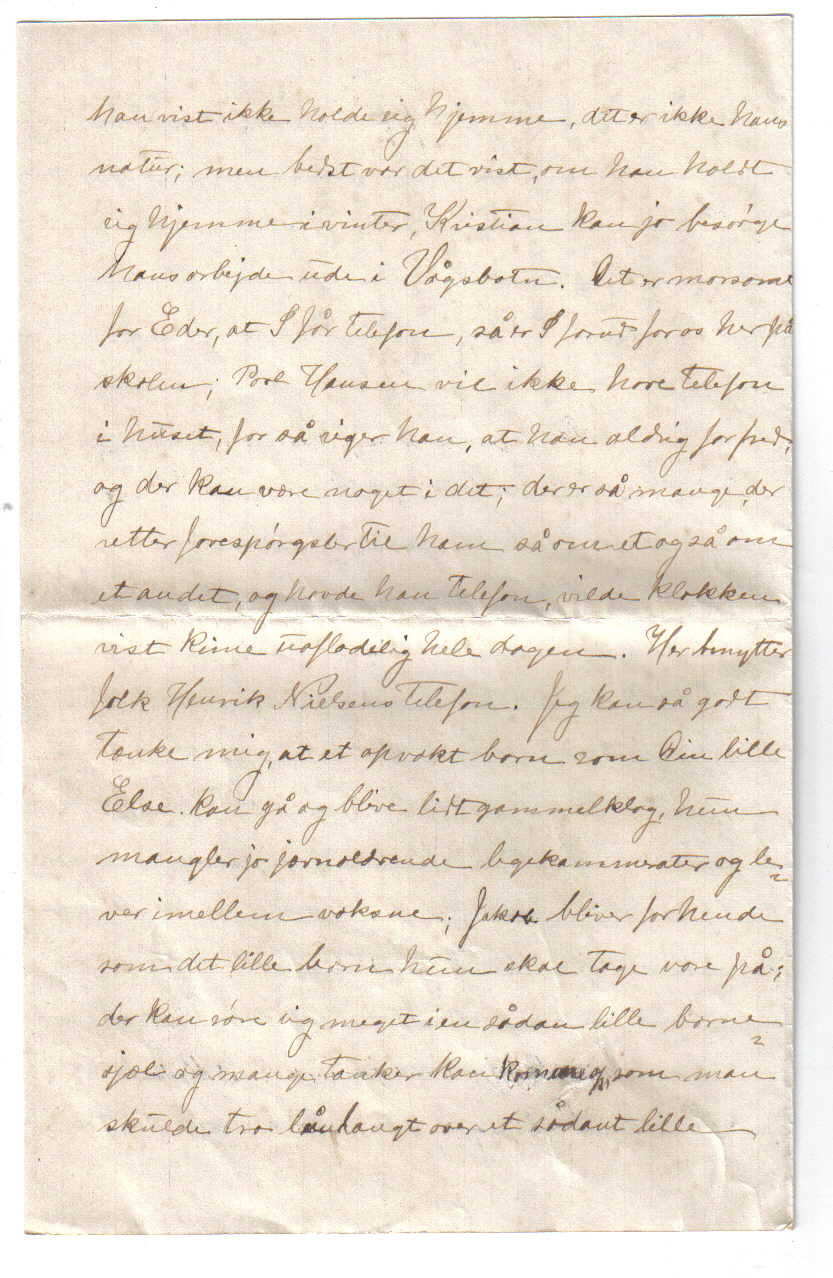 han vist ikke holde sig hjemme, det er ikke hans
natur; men bedst var det vist, om han holdt
sig hjemme i vinter, Kristian kan jo besørge
hans arbejde ude i Vågsbotn. Det er morsomt
for Eder, at I får telefon, så er I forud for os her på
skolen; Povl Hansen vil ikke have telefon
i huset, for så siger han, at han aldrig får fred,
og der kan være noget i det; der er så mange, der
retter forespørgsler til ham så om et og så om
et andet, og havde han telefon, vilde klokken
vist kime uafladelig hele dagen. Her benytter
folk Henrik Nielsens telefon. Jeg kan så godt
tænke mig, at et opvakt barn som Din lille
Else kan gå og blive lidt gammelklog, hun
mangler jo jævnaldrende legekammerater og le=
ver imellem voksne; Jakob bliver for hende
som det lille barn hun skal tage vare på;
der kan røre sig meget i en sådan lille barne=
sjæl og mange tanker kan komme op, som man
skulde tro lå langt over et sådant lille